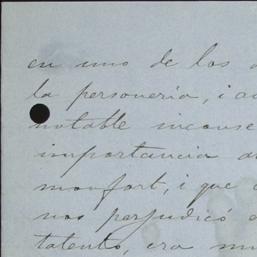 en uno de los
la personería, i
notable inconse
importancia
monfort, i que
nos perjudicó
talento, era